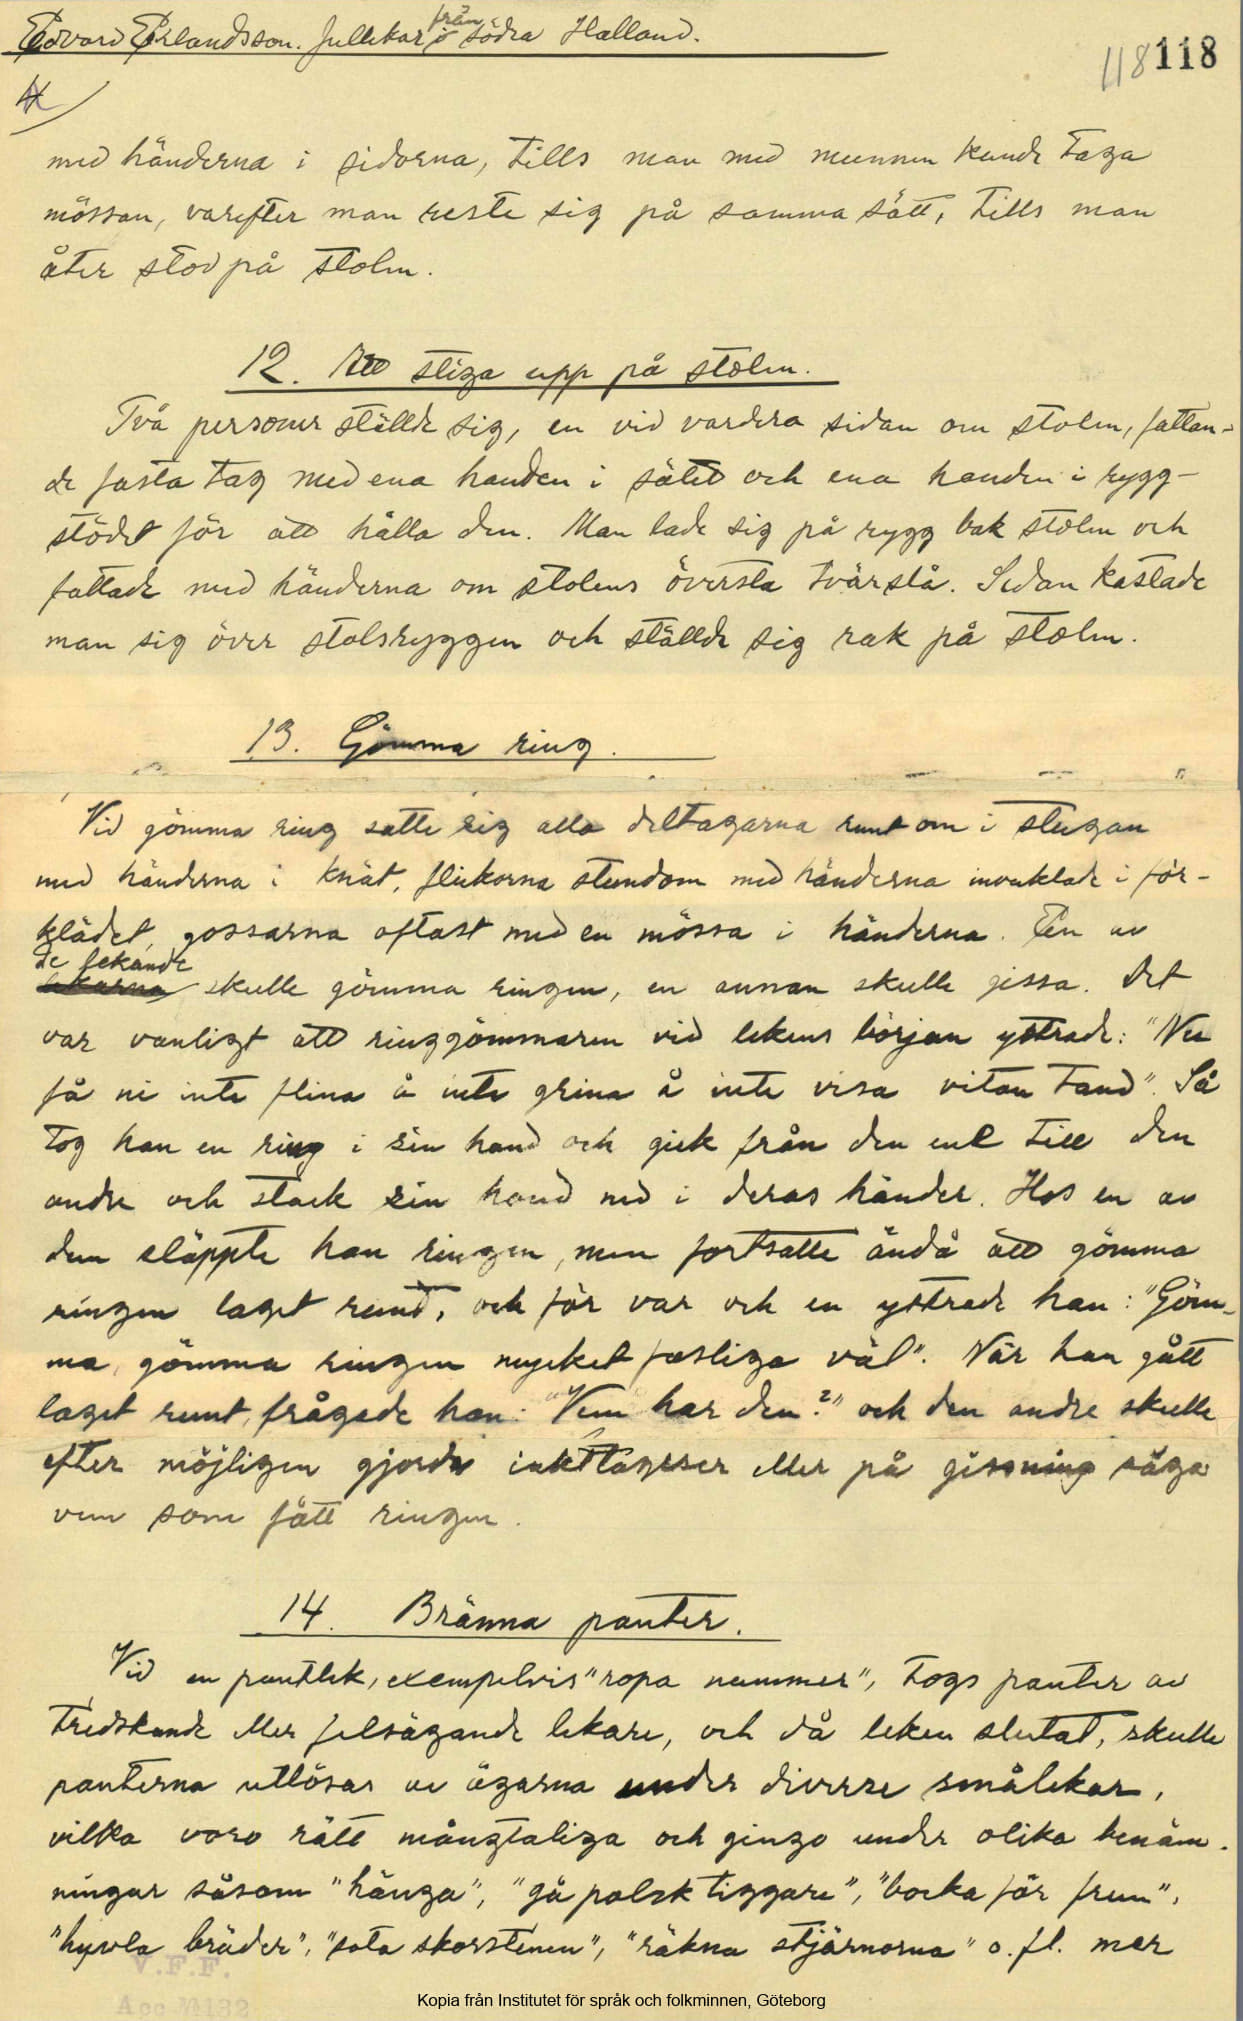 Edvard Erlandsson. Jullekar från södra Halland.
118 118
4
med händerna i sidorna, tills man med munnen kunde taga
mössan, varefter man reste sig på samma sätt, tills man
åter stod på stolen.
12. Att stiga upp på stolen.
Två personer ställde sig, en vid vardera sidan om stolen, fattan-
de fasta tag med ena handen i sätet och ena handen i rygg-
stödet för att hålla den. Man lade sig på rygg bak stolen och
fattade med händerna om stolens översta tvärslå. Sedan kastade
man sig över stolsryggen och ställde sig rak på stolen.
13. Gömma ring.
Vid gömma ring satte sig alla deltagarna runt om i stugan
med händerna i knät, flickorna stundom med händerna invecklade i för-
klädet, gossarna oftast med en mössa i händerna. En av
de lekande
lekarna skulle gömma ringen, en annan skulle gissa. Det
var vanligt att ringgömmaren vid lekens början yttrade: "Nu
få ni inte flina å inte grina å inte visa vitan tand". Så
tog han en ring i sin hand och gick från den ene till den
andre och stack sin hand ned i deras händer. Hos en av
dem släppte han ringen, men fortsatte ändå att gömma
ringen laget rund, och för var och en yttrade han: "Göm-
ma, gömma ringen mycket fasliga väl". När han gått
laget runt, frågade han: "Vem har den?" och den andre skulle
efter möjligen gjorda iakttagelser eller på gissning säga
vem som fått ringen.
14. Bränna panter.
Vid en pantlek, exempelvis "ropa nummer", togs panter av
tredskande eller felsägande lekare, och då leken slutat, skulle
panterna utlösas av ägarna under diverse smålekar,
vilka voro rätt mångtaliga och gingo under olika benäm-
ningar såsom "hänga", "gå polsk tiggare", "bocka för frun",
"hyvla bräder", "sota skorstenen", "räkna stjärnorna" o. fl. mer
V.F.F.
Acc
Kopia från Institutet för språk och folkminnen, Göteborg